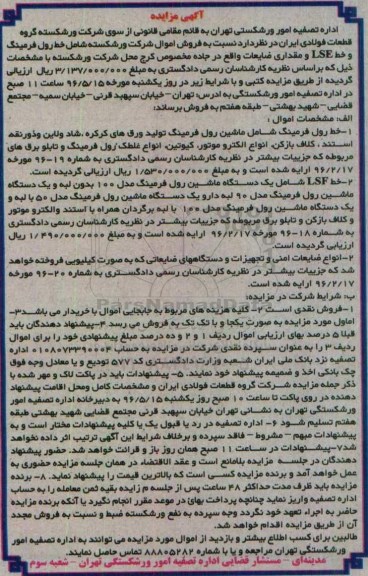 آگهی مزایده
اداره تصفیه امور ورشکستگی تهران به قائم مقامی قانونی از سوی شرکت ورشکسته گروه
قطعات فولادی ایران در نظر دارد نسبت به فروش اموال شرکت ورشکسته شامل خط رول فرمینگ
و خط LSE و مقداری ضایعات واقع در جاده مخصوص کرج محل شرکت ورشکسته با مشخصات
ذیل که براساس نظریه کارشناسان رسمی دادگستری به مبلغ ۳/۱۳۷/۰۰۰/۰۰۰ ریال ارزیابی
گردیده از طریق مزایده کتبی و با شرایط زیر در روز یکشنبه مورخه ۹۶/۵/۱۵ ساعت ۱۱ صبح
در اداره تصفیه امور ورشکستگی به آدرس: تهران- خیابان سپهبد قرنی- خیابان سمیه- مجتمع
قضایی- شهید بهشتی- طبقه هفتم به فروش برساند:
الف: مشخصات اموال:
۱-خط رول فرمینگ شامل ماشین رول فرمینگ تولید ورق های کرکره ،شاد ولاین وذوزنقه،
استند ، کلاف بازکن، انواع الکترو موتور، کیوتین، انواع غلطک رول فرمینگ و تابلو برق های
مربوطه که جزییات بیشتر در نظریه کارشناسان رسمی دادگستری به شماره ۱۹-۹۶ مورخه
۹۶/۲/۱۷ ارایه شده است و به مبلغ ۱/۵۳۰/۰۰۰/۰۰۰ ریال ارزیابی گردیده است.
۲-خط LSF شامل یک دستگاه ماشین رول فرمینگ مدل ۱۰۰ بدون لبه و یک دستگاه
ماشین رول فرمینگ مدل ۹۰ لبه دار و یک دستگاه ماشین رول فرمینگ مدل ۵۰ با لبه و
یک دستگاه ماشین رول فرمینگ مدل ۱۰۰ با لبه برگردان همراه با استند والکترو موتور
و کلاف بازکن و تابلو برق مربوطه که جزییات بیشتر در نظریه کارشناسان رسمی دادگستری
به شماره ۱۸-۹۶ مورخه ۹۶/۲/۱۷ ارایه شده است و به مبلغ ۱/۴۹۰/۰۰۰/۰۰۰ ریال
ارزیابی گردیده است.
۳-انواع ضایعات آهنی و تجهیزات و دستگاههای ضایعاتی که به صورت کیلویی فروخته خواهد
شد که جزییات بیشتر در نظریه کارشناسان رسمی دادگستری به شماره ۲۰-۹۶ مورخه
۹۶/۲/۱۷ ارایه شده است.
ب: شرایط شرکت در مزایده:
۱-فروش نقدی است ۲- کلیه هزینه های مربوط به جابجایی اموال با خریدار می باشد۳-
اماول مورد مزایده به صورت یکجا و یا تک تک به فروش می رسد ۴-پیشنهاد دهندگان باید
قبلا ده درصد بهای ارزیابی اموال ردیف ۱ و ۲ و ده درصد مبلغ پیشنهادی خود را برای اموال
ردیف ۳ را به عنوان سپرده نقدی شرکت در مزایده به حساب ۰۱۰۸۰۷۳۳۹۰۰۰۴ اداره
تصفیه نزد بانک ملی ایران شعبه وزارت دادگستری کد ۵۷۷ تودیع و یا معادل وجه فوق
چک بانکی اخذ و ضمیمه پیشنهاد خود نمایند. ۵- پیشنهادات باید در پاکت لاک و مهر شده با
ذکر جمله مزایده شرکت گروه قطعات فولادی ایران و مشخصات کامل ومحل اقامت پیشنهاد
دهنده در روی پاکت تا ساعت ۱۰ صبح روز یکشنبه ۹۶/۵/۱۵ به دبیرخانه اداره تصفیه امور
ورشکستگی تهران به نشانی تهران خیابان سپهبد قرنی مجتمع قضایی شهید بهشتی طبقه
هفتم تسلیم شود ۶- اداره تصفیه در رد یا قبول یک یا کلیه پیشنهادات مختار است و به
پیشنهادات مبهم - مشروط - فاقد سپرده و برخلاف شرایط این آگهی ترتیب اثر داده نخواهد
شد۷-پیشنهادات در ساعت ۱۱ صبح همان روز باز و قرائت خواهد شد. حضور پیشنهاد
دهندگان در جلسه مزایده بلامانع است و عقد الاقتضاء در همان جلسه مزایده حضوری به
عمل خواهد آمد و برنده مزایده کسی است که بالاترین قیمت را پیشنهاد نماید. ۸- برنده
مزایده باید ظرف مدت حداکثر ۴۸ ساعت پس از جلسه م زایده بقیه ثمن معامله را به حساب
اداره تصفیه واریز نماید چنانچه پرداخت بهائ در موعد مقرر انجام نگیرد یا آنکه برنده مزایده
حاضر به اجراء تعهد خود نگردد وجه سپرده به نفع ورشکسته ضبط و نسبت به فروش مجدد
آن از طریق مزایده اقدام خواهد شد.
طالبین برای کسب اطلاع بیشتر و بازدید از اموال مورد مزایده می توانند به اداره تصفیه امور
ورشکستگی تهران مراجعه و یا با شماره ۸۸۸۰۵۲۸۲ تماس حاصل نمایند.
مدینه‌ای - مستشار قضایی اداره تصفیه امور ورشکستگی تهران - شعبه سوم